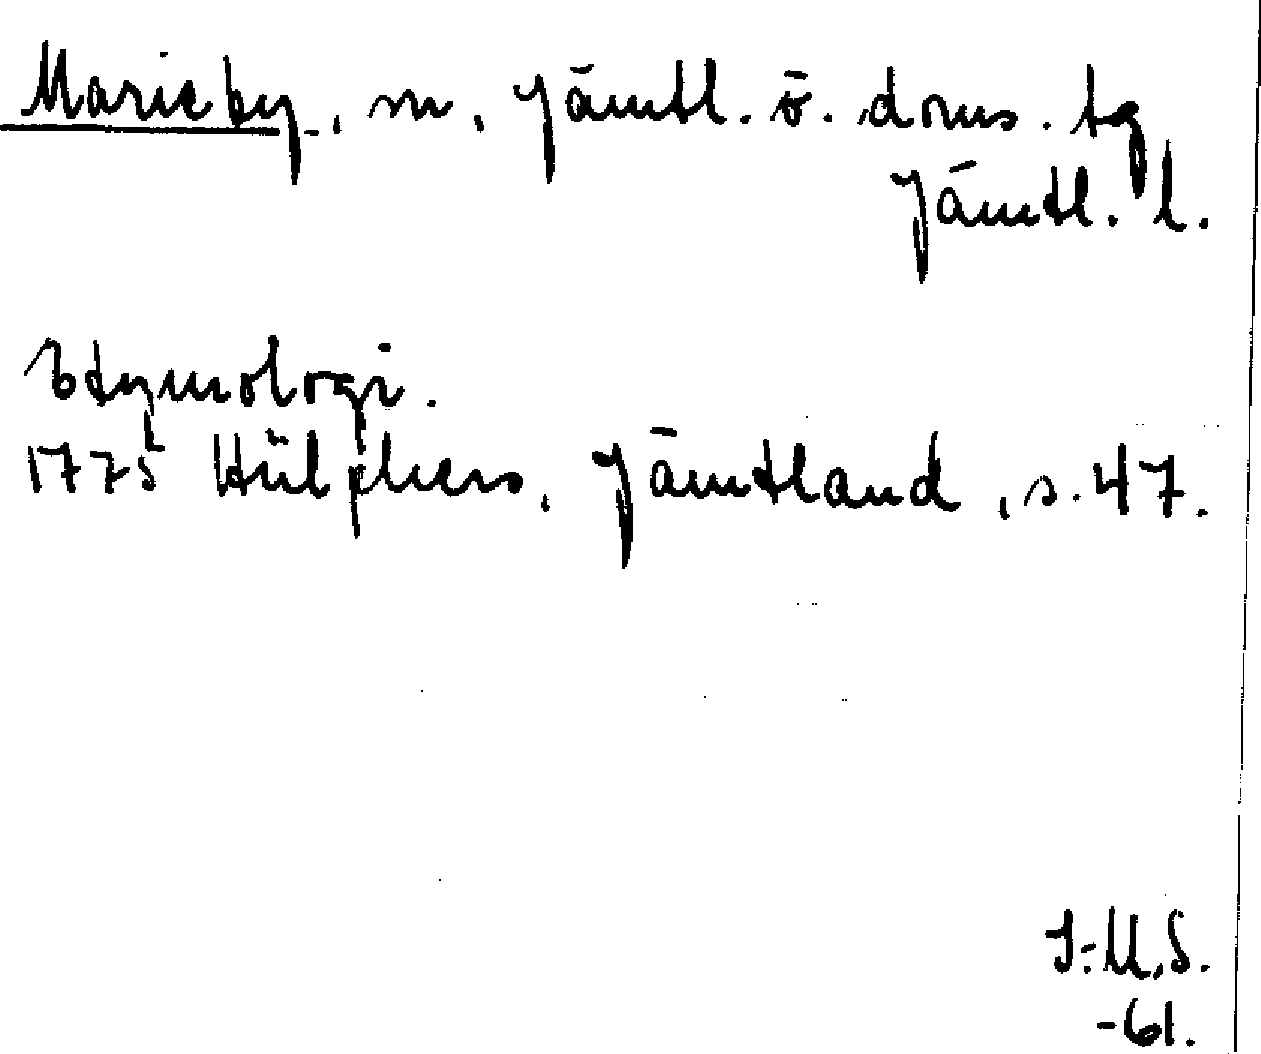 Marieby, m, Jämtl. ö. doms. tg
Jämtl. l.
Etymologi.
1775 Hülphers, Jämtland, s. 47.
I-M.S.
-61.